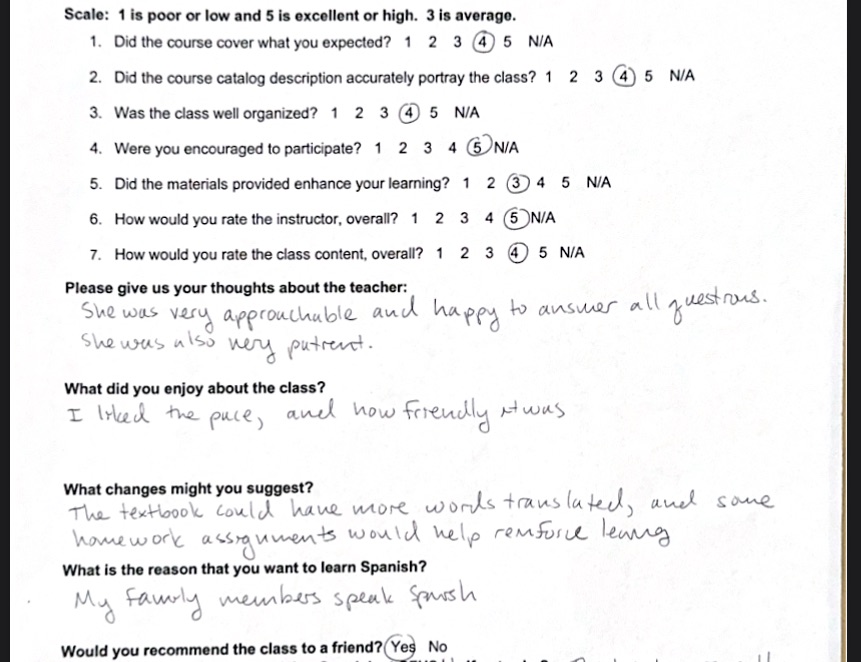 Scale: 1 is poor or low and 5 is excellent or high. 3 is average.
1. Did the course cover what you expected? 1 2 3 4 5 N/A
2. Did the course catalog description accurately portray the class? 1 2 3 4 5 N/A
3. Was the class well organized? 1 2 3 4 5 N/A
4. Were you encouraged to participate? 1 2 3 4 5 N/A
5. Did the materials provided enhance your learning? 1 2 3 4 5 N/A
6. How would you rate the instructor, overall? 1 2 3 4 5 N/A
7. How would you rate the class content, overall? 1 2 3 4 5 N/A
Please give us your thoughts about the teacher:
She was very approachable and happy to answer all questions.
She was also very patient.
What did you enjoy about the class?
I liked the pace, and how friendly it was
What changes might you suggest?
The textbook could have more words translated, and some
homework assignments would help reinforce learning
What is the reason that you want to learn Spanish?
My family members speak Spanish
Would you recommend the class to a friend? Yes No